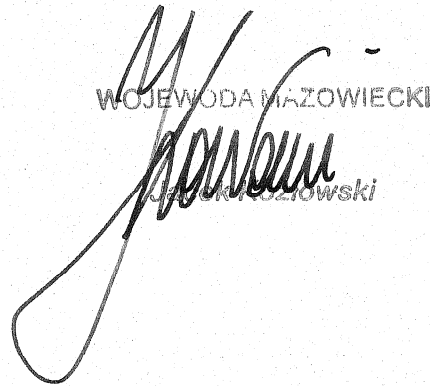 WOJEWODA MAZOWIECKI
Jacek Kozłowski